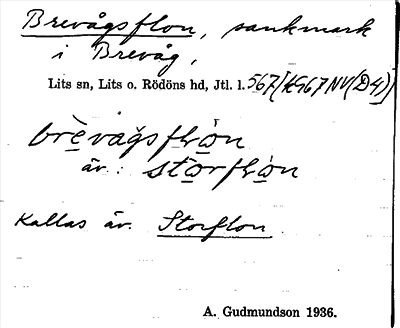 Brevågsflon, sankmark
i Brevåg,
Lits sn, Lits o. Rödöns hd, Jtl. l. 567
brèvågsflòn
äv.: stòrflòn
Kallas äv. Storflon.
A. Gudmundson 1936.